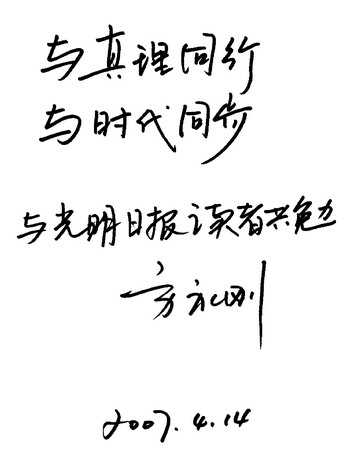 与真理同行
与时代同步
与光明日报读者共勉
方永刚
2007.4.14